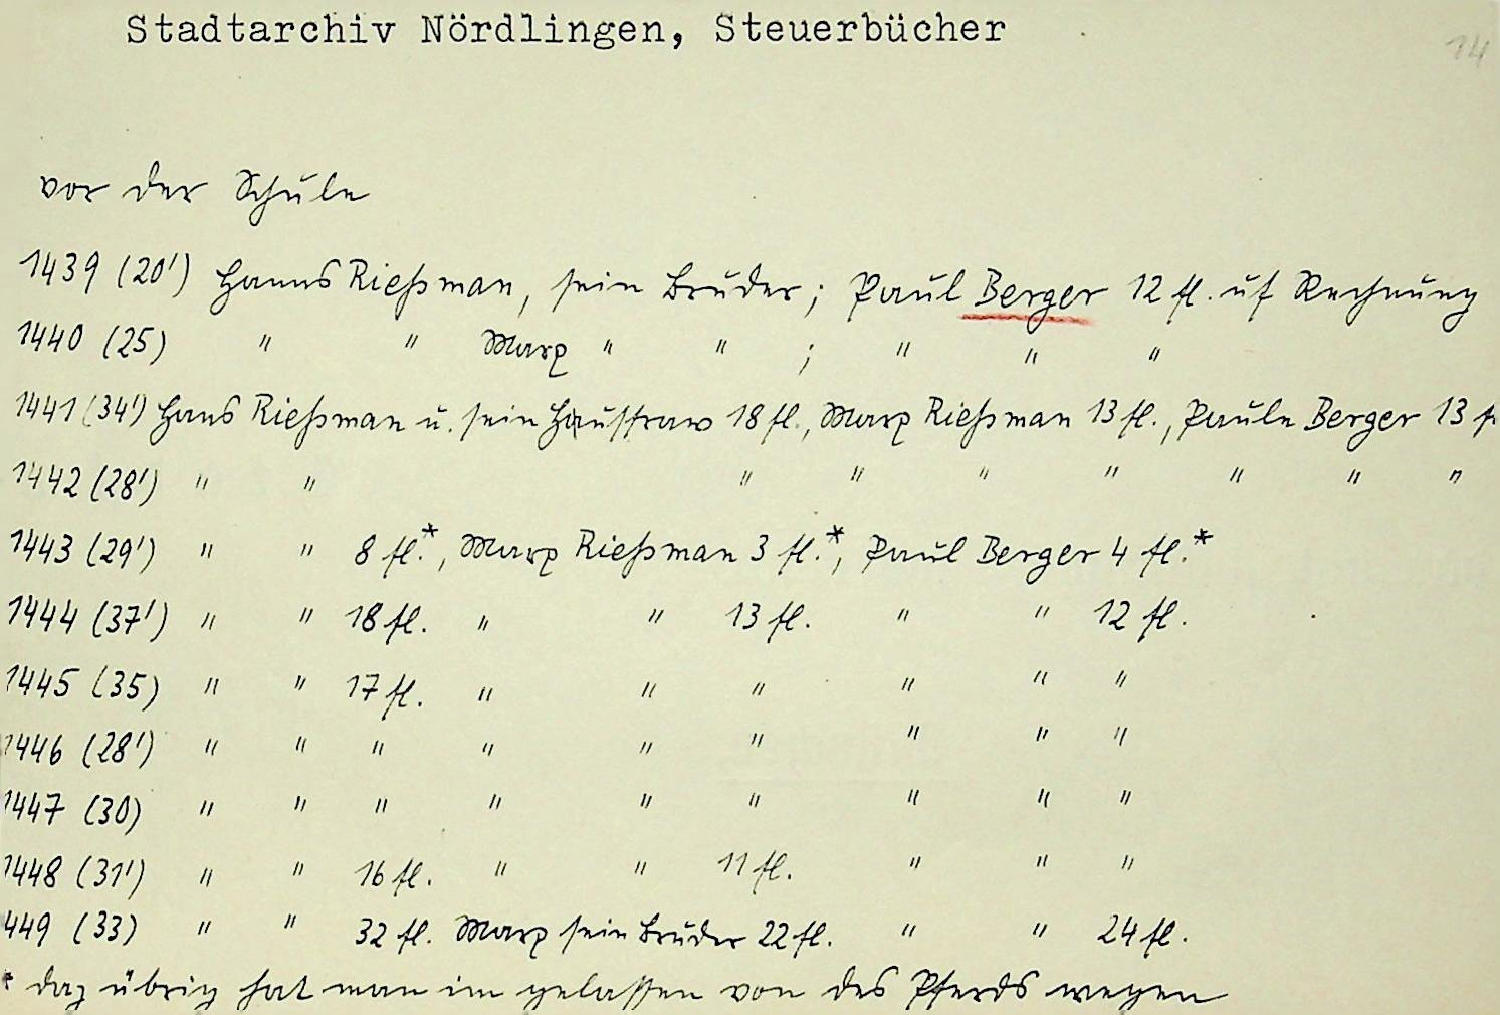 Stadtarchiv Nördlingen, Steuerbücher
14
vor der Schule
1439 (20') Hanns Rießman, sein Bruder; Paul Berger 12 fl. uf Rechnung
1440 (25) " " Marx " " ; " " "
1441 (34') Hans Rießman u. sein Hausfraw 18 fl., Marx Rießman 13 fl., Paule Berger 13 f
1442 (28') " " " " " " " " "
1443 (29') " " 8 fl.*, Marx Rießman 3 fl.*, Paul Berger 4 fl.*
1444 (37') " " 18 fl. " " 13 fl. " " 12 fl.
1445 (35) " " 17 fl. " " " " " "
1446 (28') " " " " " " " " "
1447 (30) " " " " " " " " "
1448 (31') " " 16 fl. " " 11 fl. " " "
449 (33) " " 32 fl. Marx sein Bruder 22 fl. " " 24 fl.
* daz übrig hat man im gelassen von des Pferds wegen